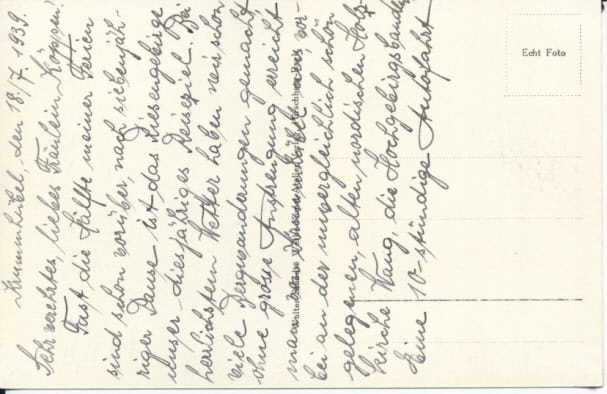 Krummhübel, den 18/7. 1939.
Sehr verehrtes, liebes Fräulein Köppen!
Fast die Hälfte meiner Ferien
sind schon vorüber, nach siebenjäh-
riger Pause ist das Riesengebirge
unser diesjähriges Reiseziel. Bei
herrlichstem Wetter haben wir schon
viele Bergwanderungen gemacht
ohne grosse Anstrengung erreicht
man vor-
bei an der unvergleichlich schön
gelegenen, alten, nordischen Holz-
kirche Wang, die Hochgebirgsbaude
Eine 10-stündige Autofahrt
Echt Foto